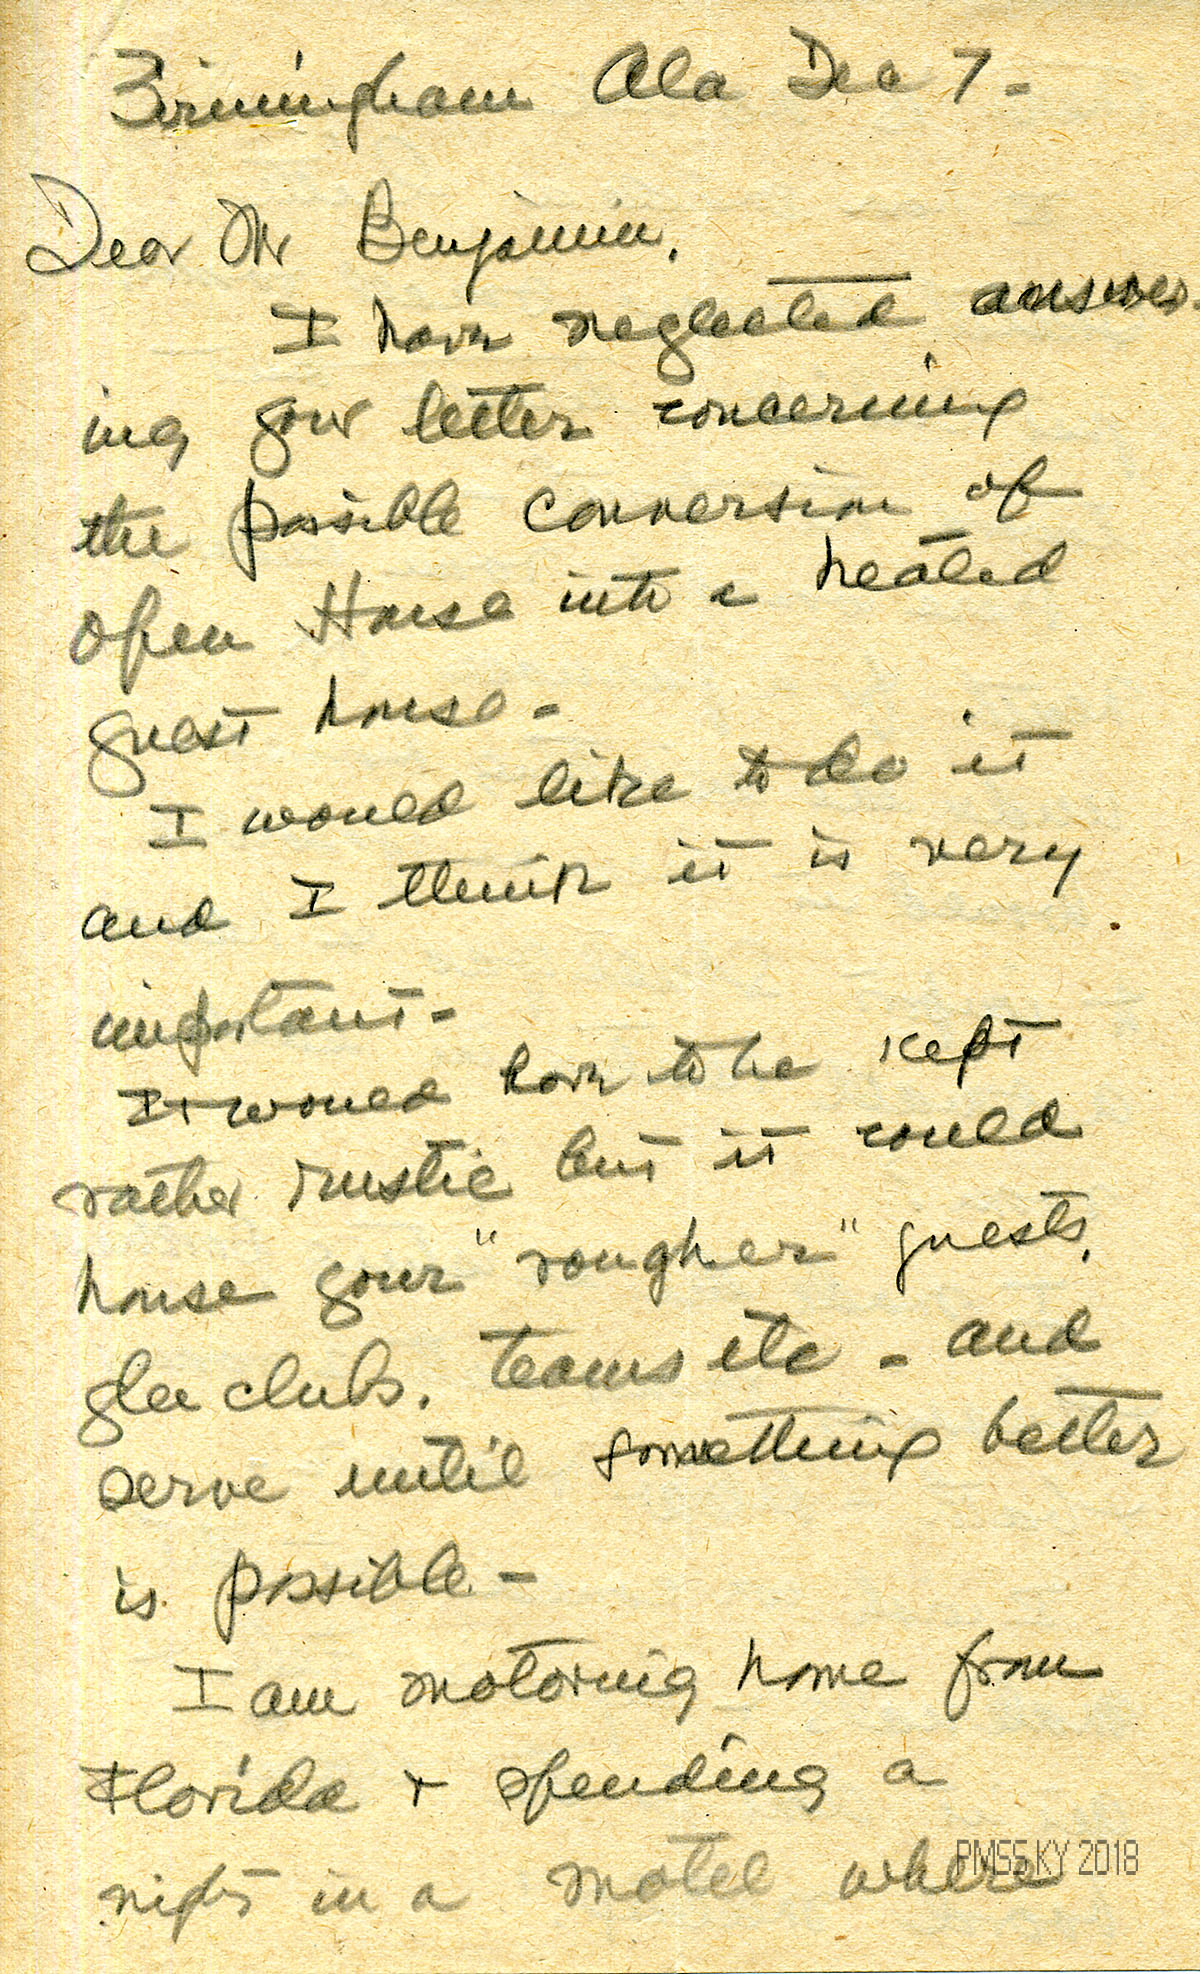 Birmingham Ala Dec 7-
Dear Mr Benjamin,
I have neglected answer-
ing your letter concerning
the possible conversion of
Open House into a heated
guest house-
I would like to do it
and I think it is very
important-
It would have to be kept
rather rustic but it could
house your "rougher" guests,
glee clubs, teams etc - and
serve until something better
is possible-
I am motoring home from
Florida + spending a
night in a motel where
PMSS KY 2018